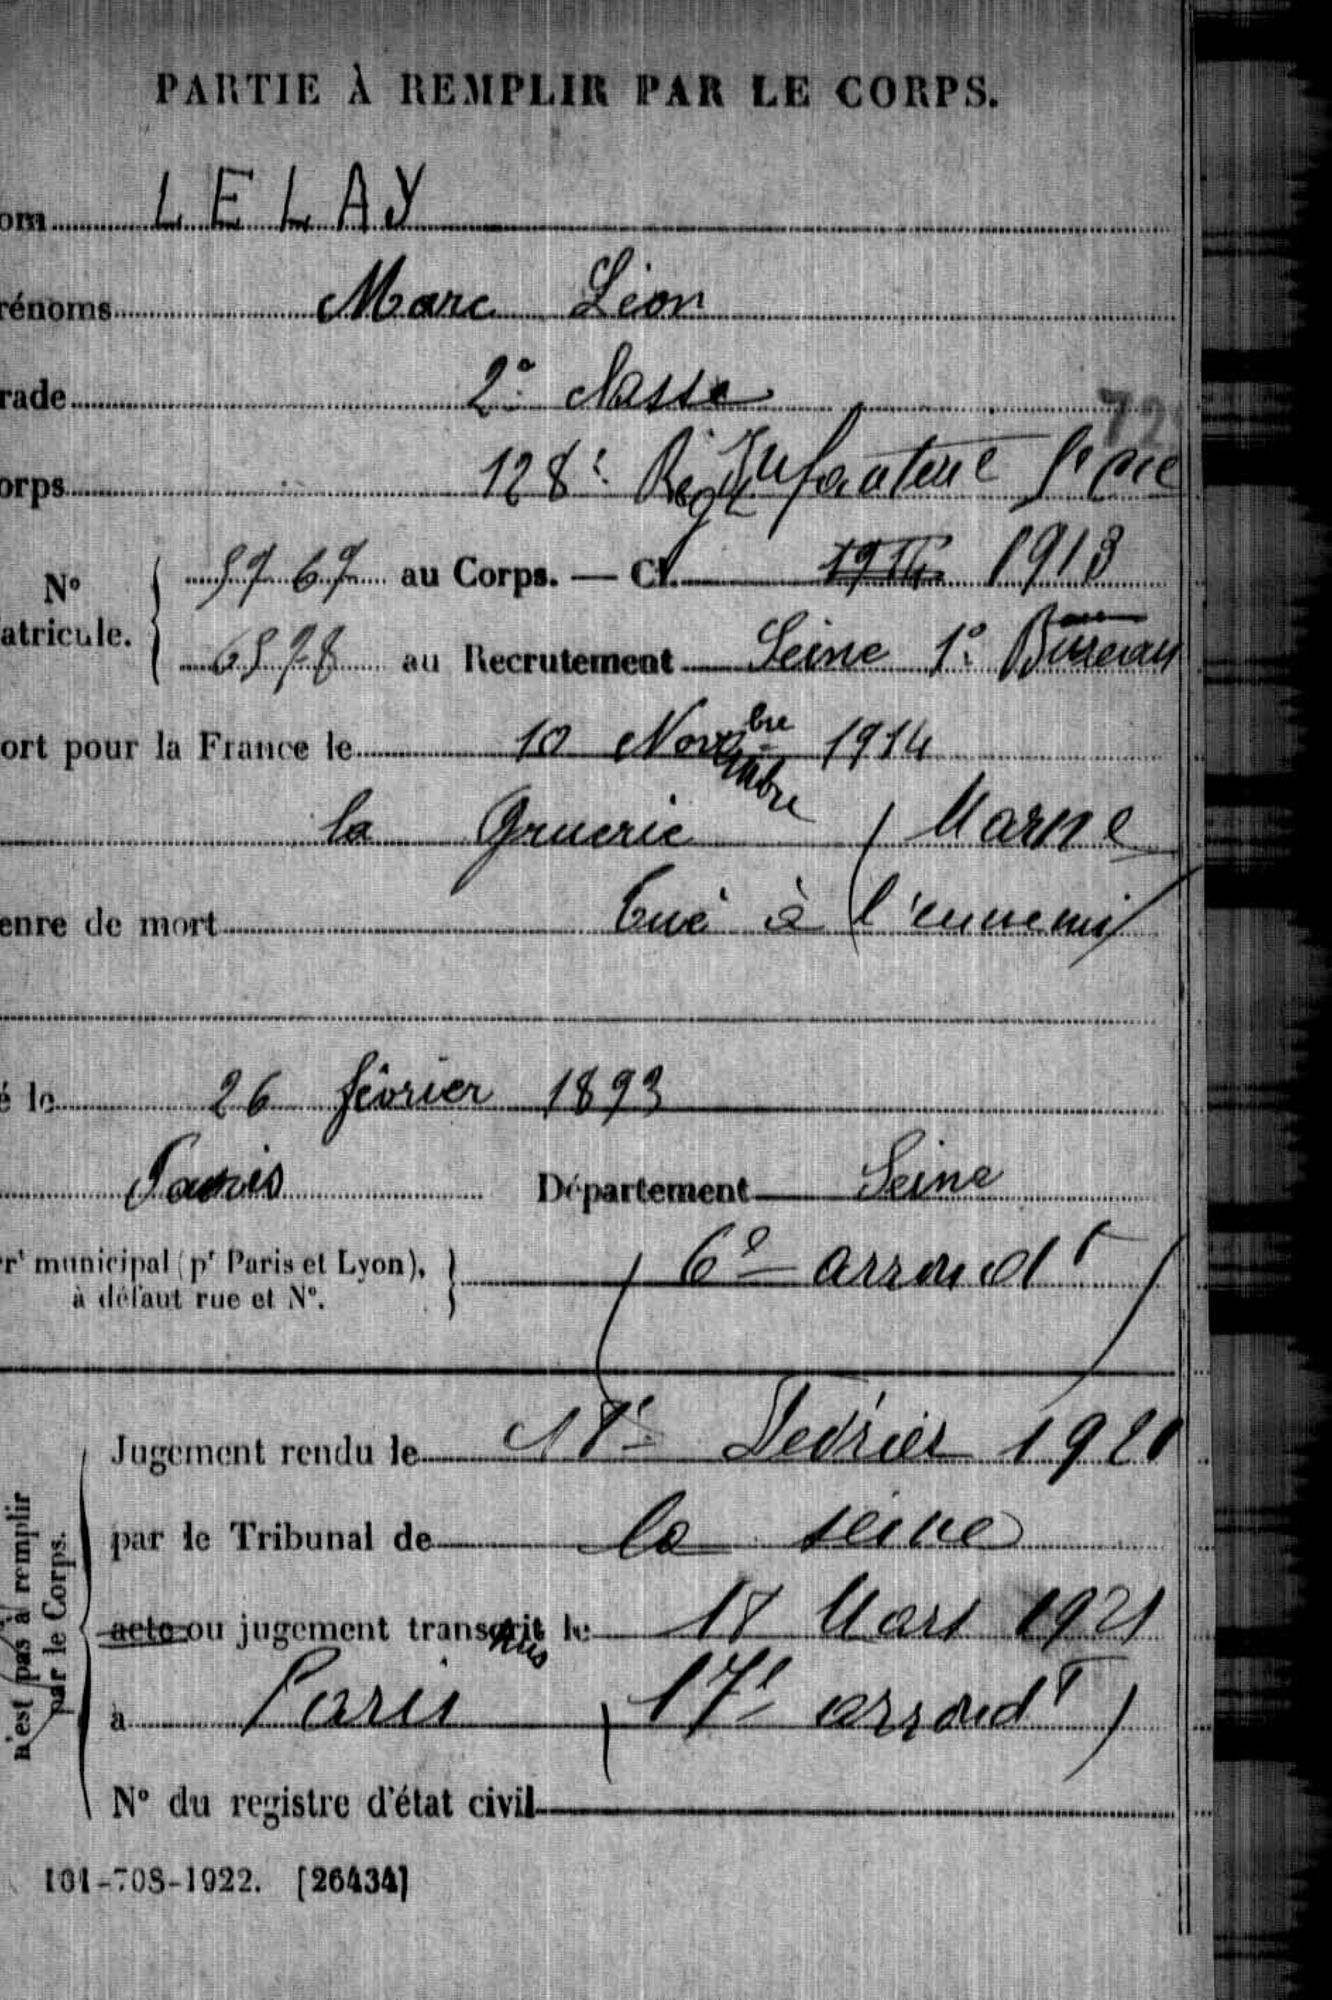 PARTIE À REMPLIR PAR LE CORPS.
om LELAY
rénoms Marc Léon
rade 2e classe
72
orps 128e Rég Infanterie
N°
atricule.
5767 au Corps. — Cl. 1914 1913
6578 au Recrutement Seine 1e Bureau
ort pour la France le 10 Novembre 1914
la Gruerie (Marne)
enre de mort Tué à l'ennemi
é le 26 février 1893
Paris Département Seine
rr^t municipal (p^r Paris et Lyon),
à défaut rue et N°.
(6e arrond^t)
Jugement rendu le 18 Février 1921
par le Tribunal de la seine
acte ou jugement transcrit le 18 Mars 1921
à Paris (17e arrond^t)
N° du registre d'état civil
n'est pas à remplir
par le Corps.
101-708-1922. [26434]